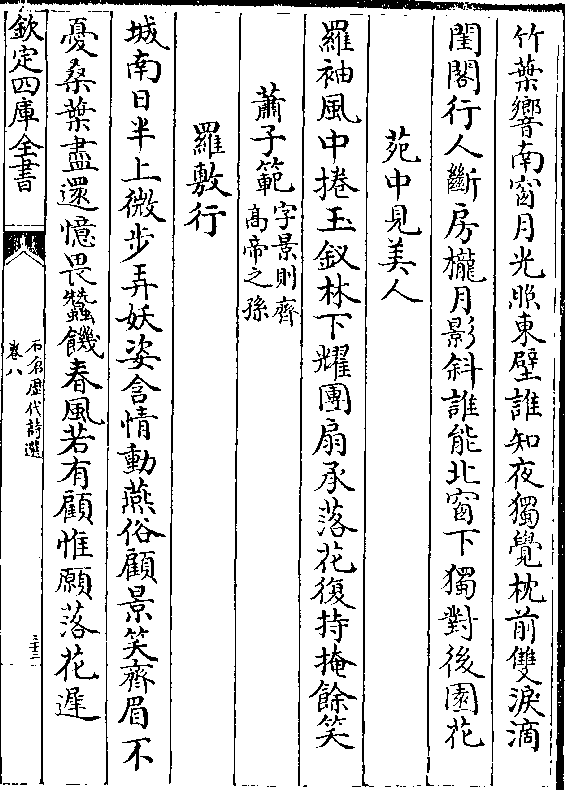 竹葉響南窗月光照東壁誰知夜獨覺枕前雙淚滴
閨閣行人斷房櫳月影斜誰能北窗下獨對後園花
苑中見美人
羅袖風中捲玉釵林下耀團扇承落花復持掩餘笑
蕭子範字景則齊
高帝之孫
羅敷行
城南日半上微步弄妖姿含情動燕俗顧景笑齊眉不
憂桑葉盡還憶畏蠶饑春風若有顧惟願落花遲
欽定四庫全書
石倉歷代詩選
卷八
三十三